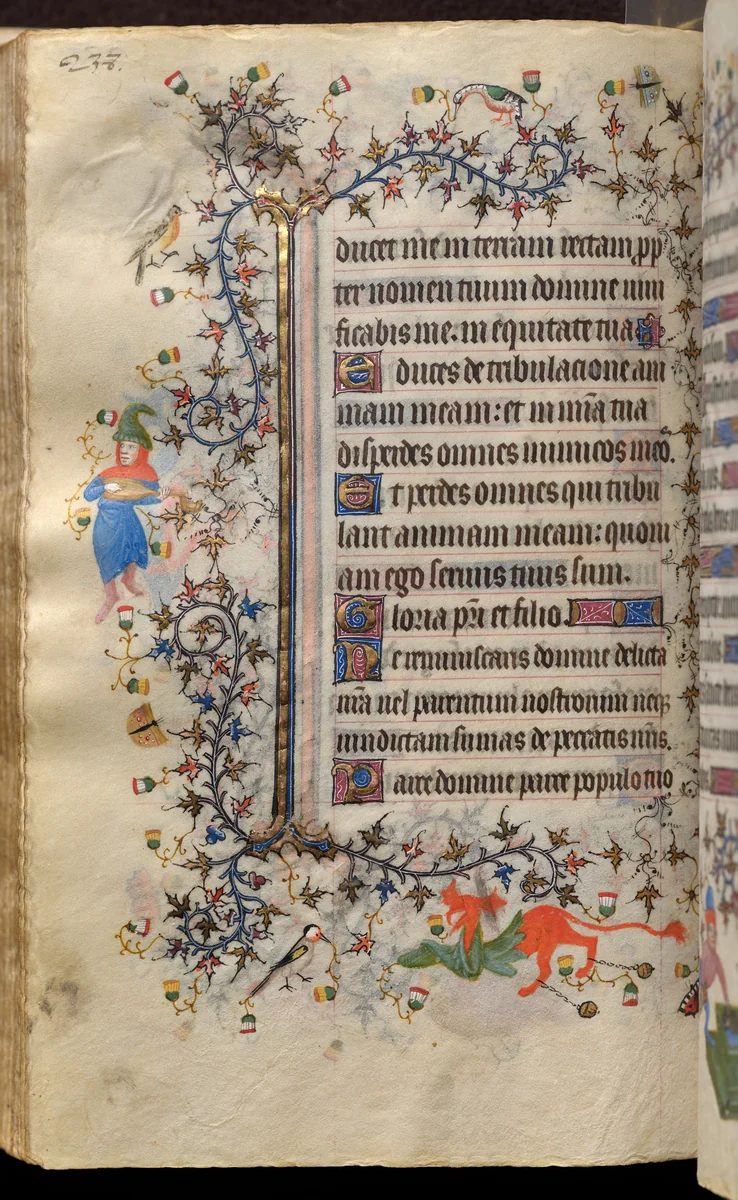 ducet me in terram rectam pp
ter nomen tuum domine uiui
ficabis me. in equitate tua
Educes de tribulacione ani
mam meam: et in mia tua
disperdes omnes inimicos meo.
Et perdes omnes qui tribu
lant animam meam: quoni
am ego seruus tuus sum.
Gloria pri et filio.
Ne reminiscaris domine delicta
nra uel parentum nostrorum neqz
uindictam sumas de peccatis nris.
Parce domine parce populo tuo